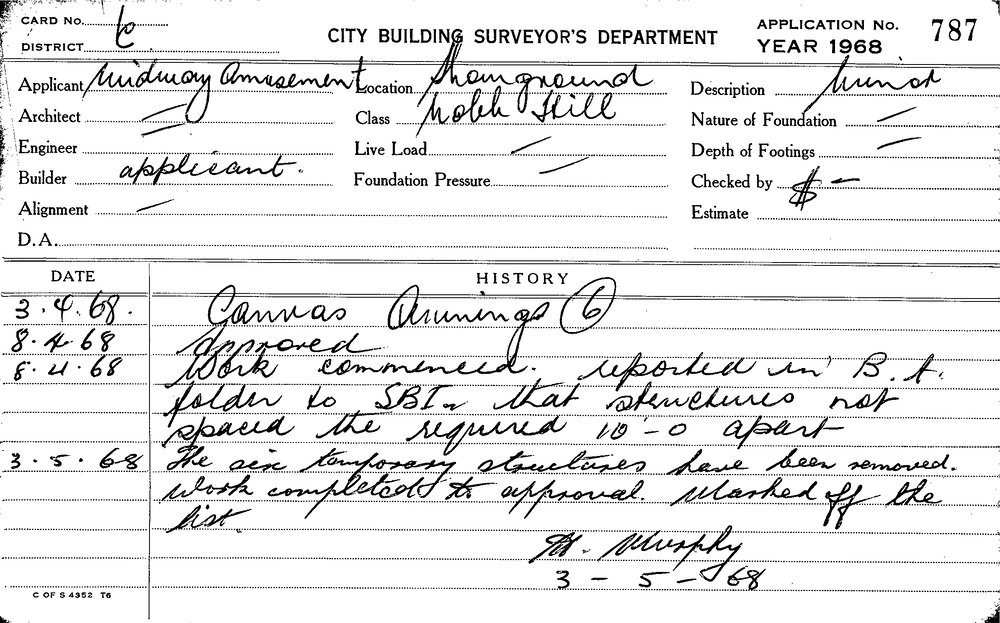 CARD No. 6
DISTRICT
CITY BUILDING SURVEYOR'S DEPARTMENT
APPLICATION No. 787
YEAR 1968
Applicant Midway Amusement Location Showground Description Minor
Architect — Class Mobh Hill Nature of Foundation —
Engineer — Live Load — Depth of Footings —
Builder applicant. Foundation Pressure — Checked by —
Alignment — Estimate
D.A.
DATE HISTORY
3.4.68. Canvas Awnings (6)
8.4.68 Approved
8.4.68 Work commenced. reported in B.A.
folder to SBI that structures not
spaced the required 10-0 apart
3.5.68 The six temporary structures have been removed.
Work completed to approval. Marked off the
list.
M. Murphy
3-5-68
C OF S 4352 T6